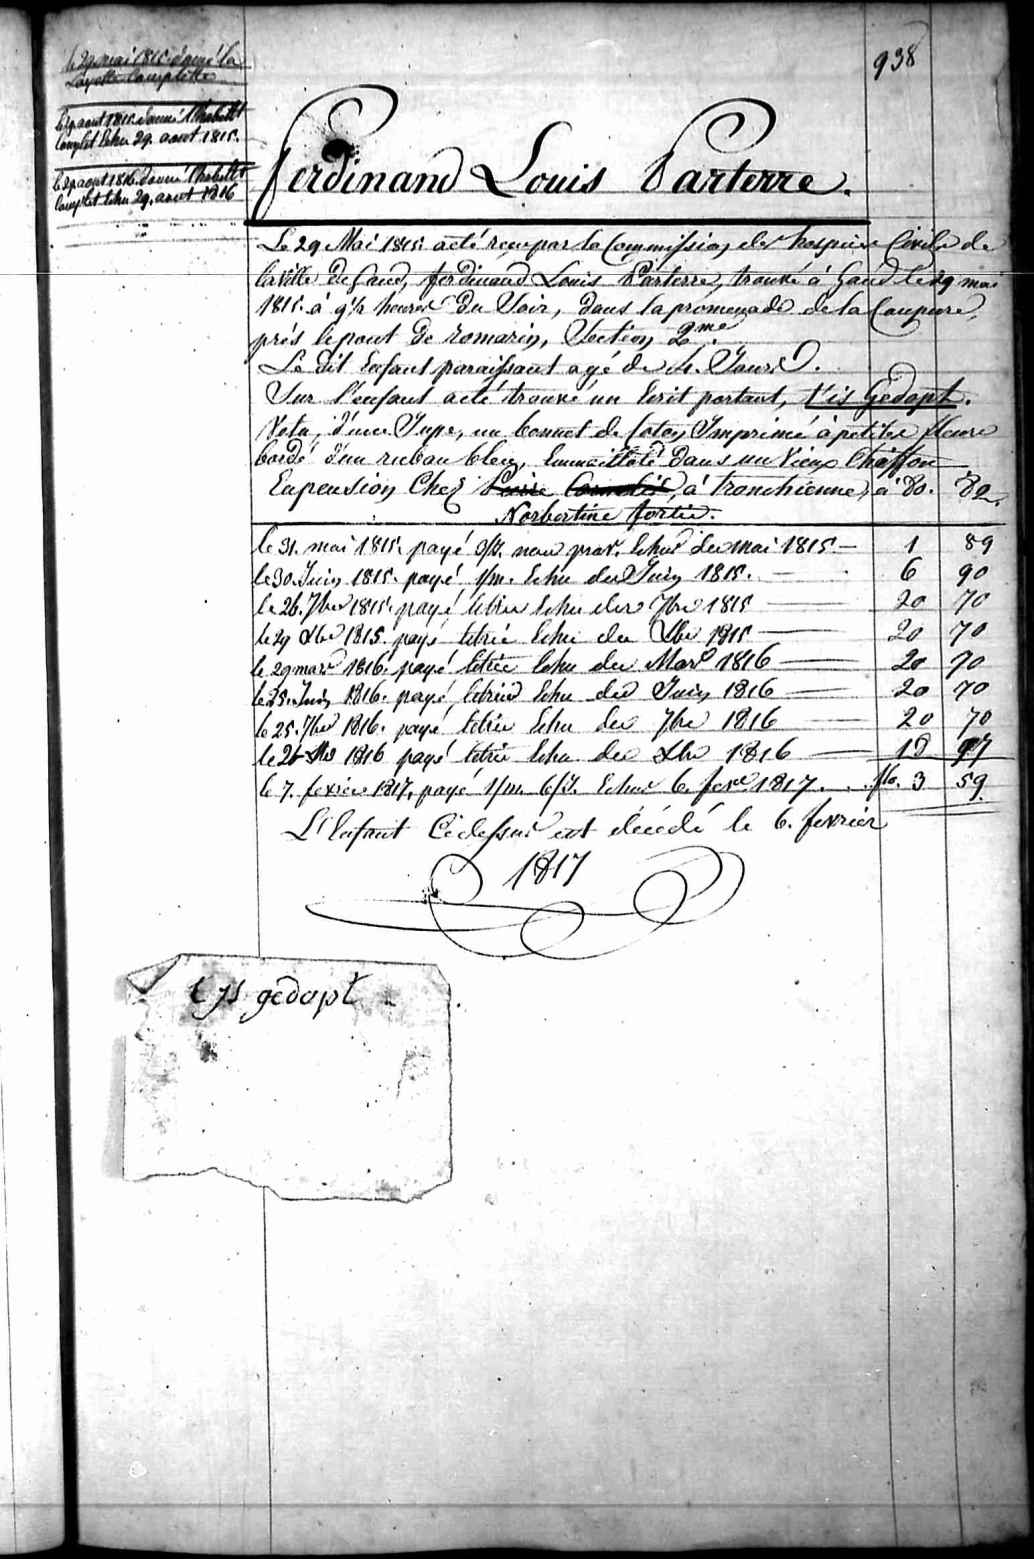 938
le 29 mai 1815 donné la
Layette Complette
le 29 aout 1815 donné l'habillt
Complet Echu 29. aout 1815.
le 29 aout 1816. donné l'habillt
Complet Echu 29. aout 1816
Ferdinand Louis Parterre.
Le 29 Mai 1815. a été reçu par la Commission des hospices Civils de
la Ville de Gand, ferdinand Louis Parterre, trouvé à Gand le 29 mai
1815. à 9½ heures du Soir, dans la promenade de la Coupure,
près le pont de romarin, Section 2me.
Le dit Enfant paraissant agé de 4. Jours.
Sur l'enfant a été trouvé un Ecrit portant, t'is Gedopt.
Vetu, d'une Jupe, un bonnet de Coton Imprimé à petites fleurs
bordé d'un ruban bleu, Emmailloté dans un Vieux Chiffon
En pension Chez Pierre à tronchienne, à 80. 82.
Norbertine fortie.
le 31. mai 1815. payé Echus de mai 1815. — 1 89
le 30. Juin 1815. payé 1/m. Echu de Juin 1815. — 6 90
le 26. 7bre 1815. payé letrie Echu de 7bre 1815 — 20 70
le 29 Xbre 1815. payé letrie Echu de Xbre 1815 — 20 70
le 29 mars 1816. payé letrie Echu de Mars 1816 — 20 70
le 25. Juin 1816. payé letrie Echu de Juin 1816 — 20 70
le 25. 7bre 1816. payé letrie Echu de 7bre 1816 — 20 70
le 26 Xbre 1816 payé letrie Echu de Xbre 1816 — 18 97
le 7. fevrier 1817, payé 1/m. 6/J. Echus 6. fevr 1817. . . flo. 3 59.
L'Enfant Cidessus est décédé le 6. fevrier
1817
t js gedopt